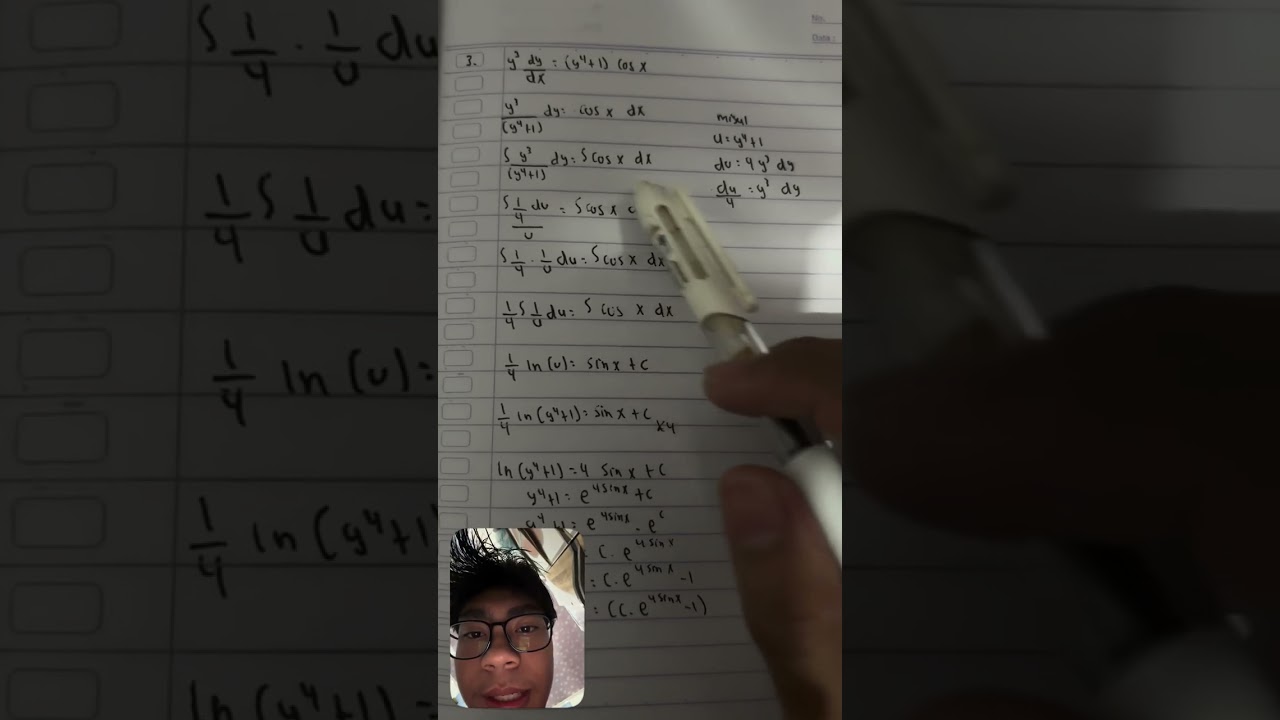 No.
Date :
3. y³ dy/dx = (y⁴+1) cos x
y³/(y⁴+1) dy = cos x dx
misal
u = y⁴+1
∫ y³/(y⁴+1) dy = ∫ cos x dx
du = 4y³ dy
du/4 = y³ dy
∫ 1/4 du/u = ∫ cos x
∫ 1/4 . 1/u du = ∫ cos x dx
1/4 ∫ 1/u du = ∫ cos x dx
1/4 ln (u) = sin x + c
1/4 ln (y⁴+1) = sin x + c x4
ln (y⁴+1) = 4 sin x + c
y⁴+1 = e^(4 sin x) + c
y⁴+1 = e^(4 sin x) . e^c
c . e^(4 sin x)
= c . e^(4 sin x) -1
= (c . e^(4 sin x) -1)
∫ 1/4 . 1/u du
1/4 ∫ 1/u du =
1/4 ln (u) =
1/4 ln (y⁴+1
ln (y⁴+1) =